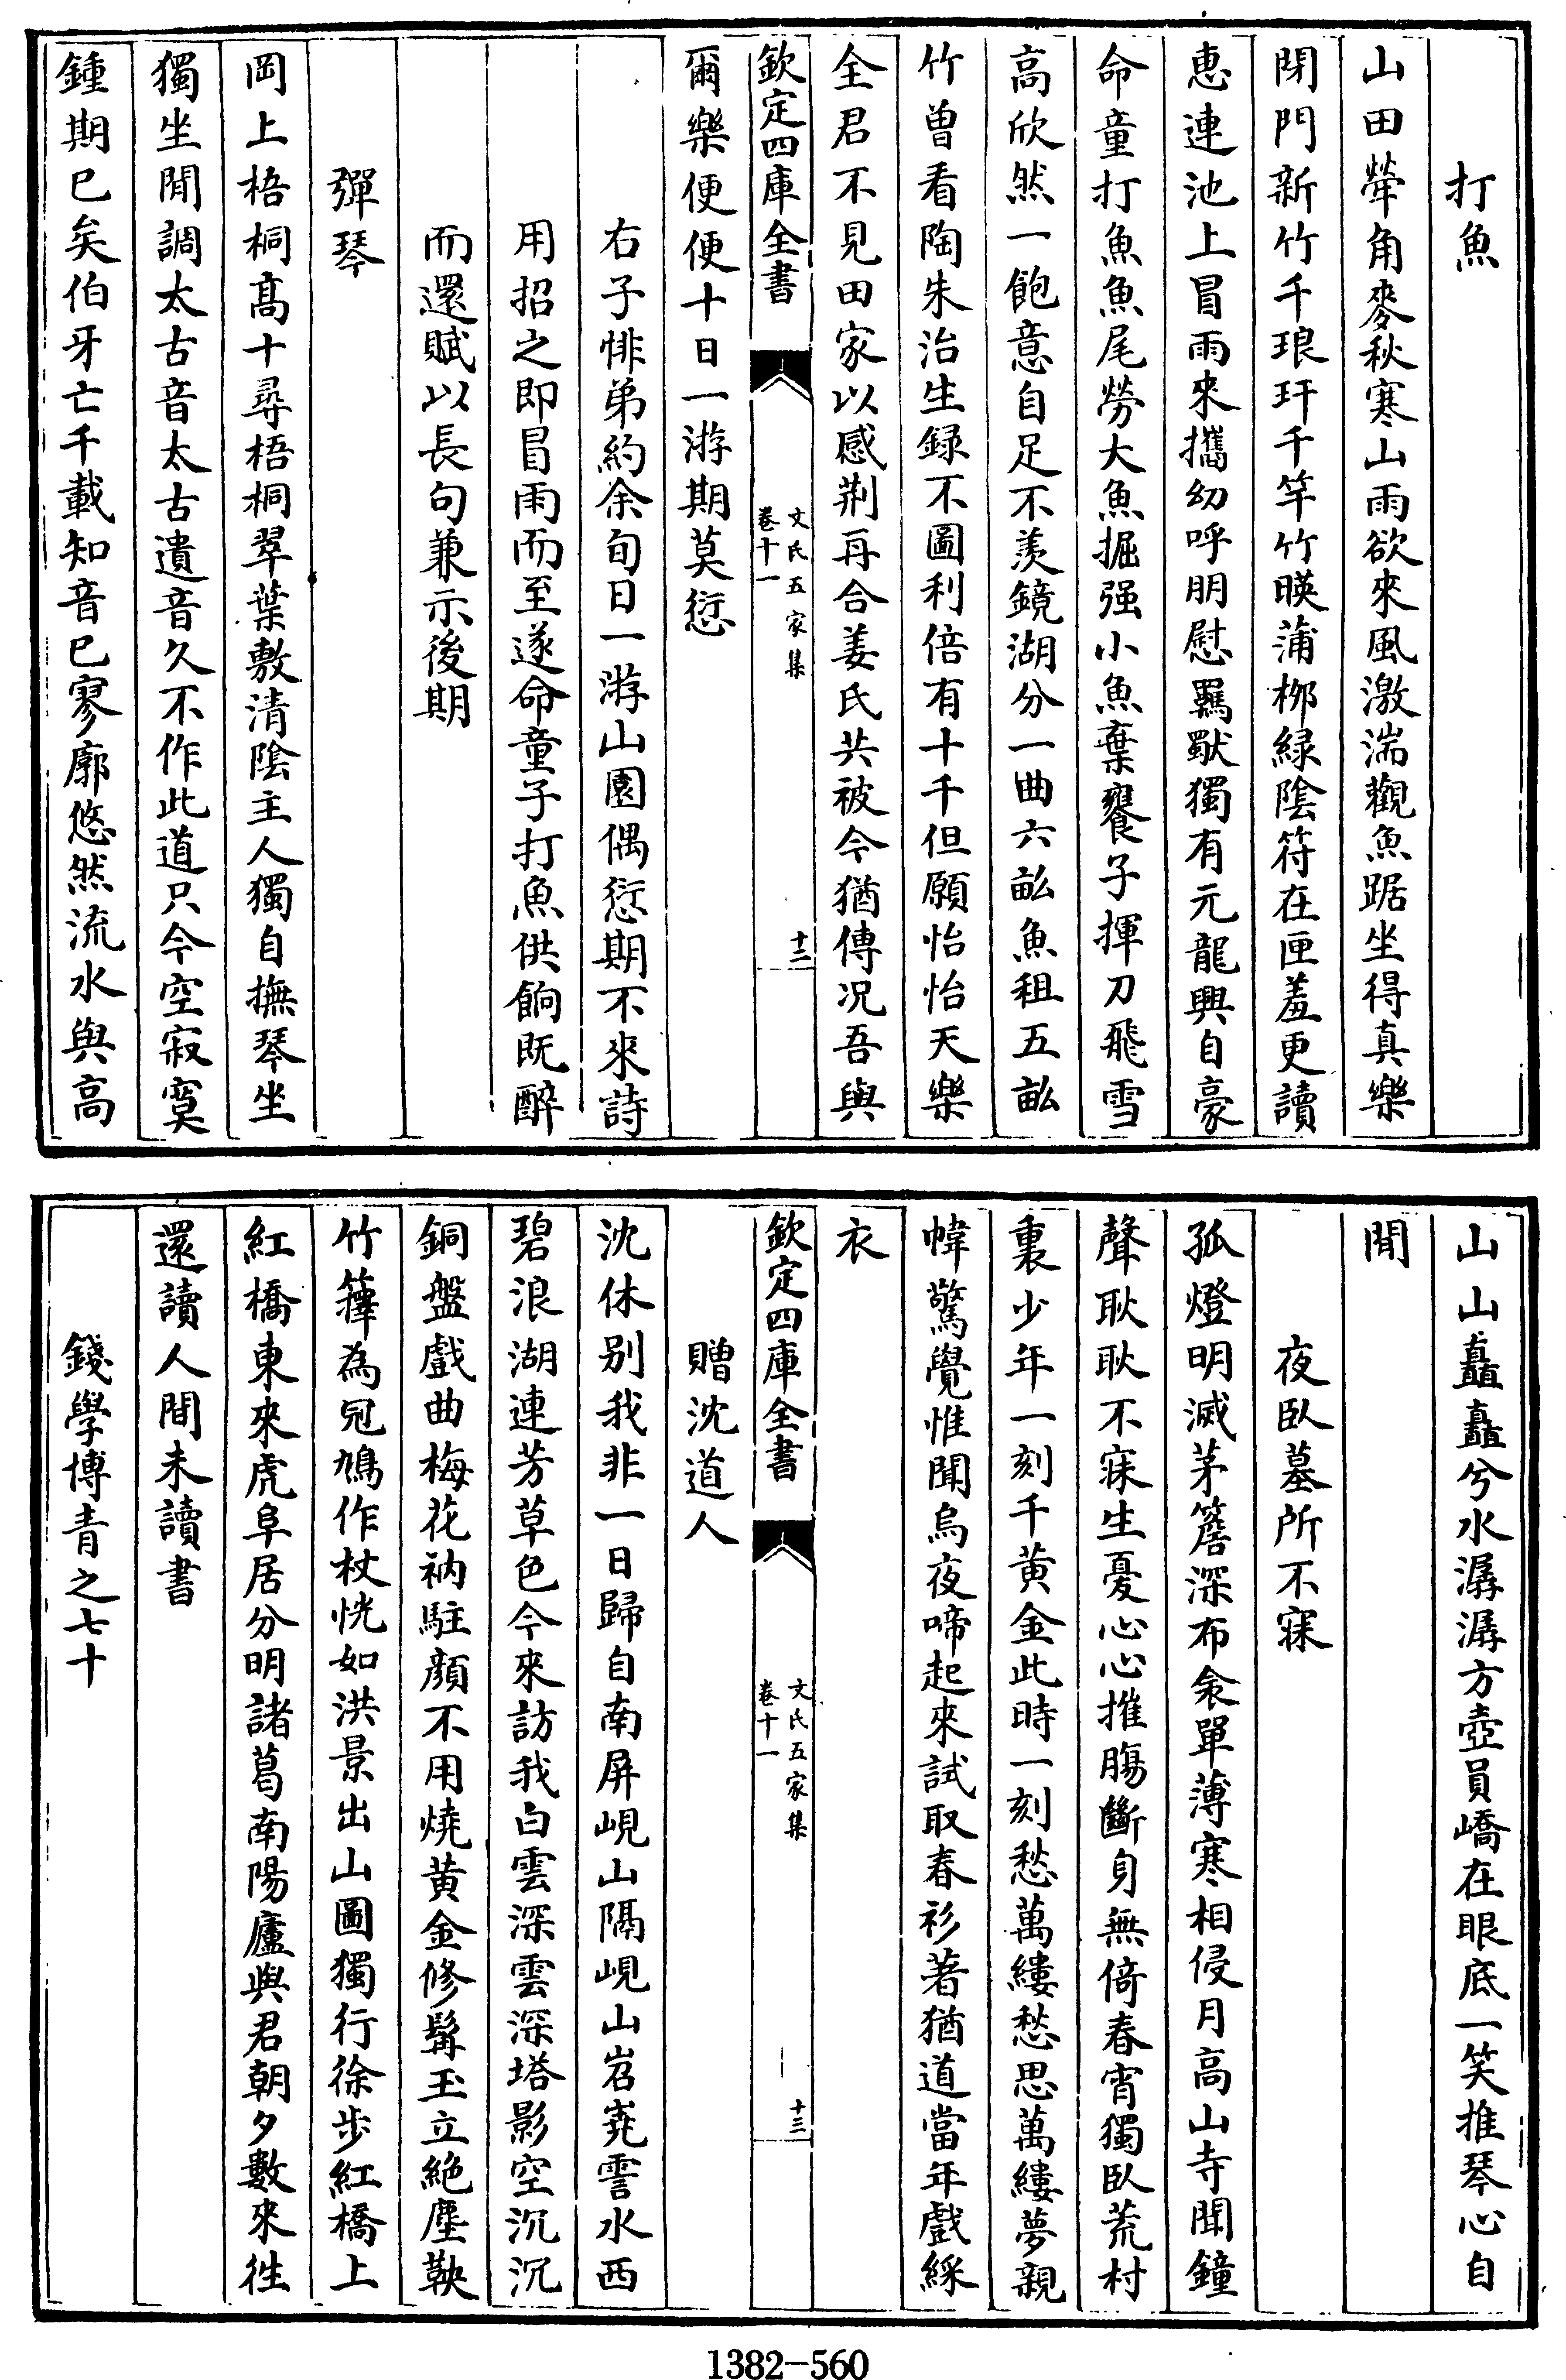 打魚
山田犖角麥秋寒山雨欲來風激湍觀魚踞坐得真樂
閉門新竹千琅玕千竿竹暎蒲柳緑陰符在匣羞更讀
惠連池上冒雨來攜幼呼朋慰羈獃獨有元龍興自豪
命童打魚魚尾勞大魚掘强小魚棄饔子揮刀飛雪
高欣然一飽意自足不羨鏡湖分一曲六畆魚租五畆
竹曽看陶朱治生録不圖利倍有十千但願怡怡天樂
全君不見田家以感荆再合姜氏共被今猶傳况吾與
欽定四庫全書
文氏五家集
卷十一
十二
爾樂便便十日一游期莫愆
右子悱弟約余旬日一游山園偶愆期不來詩
用招之即冒雨而至遂命童子打魚供餉既醉
而還賦以長句兼示後期
彈琴
岡上梧桐髙十尋梧桐翠葉敷清陰主人獨自撫琴坐
獨坐閒調太古音太古遺音久不作此道只今空寂寞
鍾期已矣伯牙亡千載知音已寥廓悠然流水與高
山山矗矗兮水潺潺方壺員嶠在眼底一笑推琴心自
閒
夜臥墓所不寐
孤燈明滅茅簷深布衾單薄寒相侵月高山寺聞鐘
聲耿耿不寐生憂心心摧腸斷身無倚春宵獨臥荒村
裏少年一刻千黄金此時一刻愁萬縷愁思萬縷夢親
幃驚覺惟聞烏夜啼起來試取春衫著猶道當年戲綵
衣
欽定四庫全書
文氏五家集
卷十一
十三
贈沈道人
沈休别我非一日歸自南屏峴山隔峴山岧嶤霅水西
碧浪湖連芳草色今來訪我白雲深雲深塔影空沉沉
銅盤戲曲梅花衲駐顔不用燒黄金修髯玉立絶塵鞅
竹籜為冠鳩作杖恍如洪景出山圖獨行徐步紅橋上
紅橋東來虎阜居分明諸葛南陽廬與君朝夕數來往
還讀人間未讀書
錢學博青之七十
1382-560